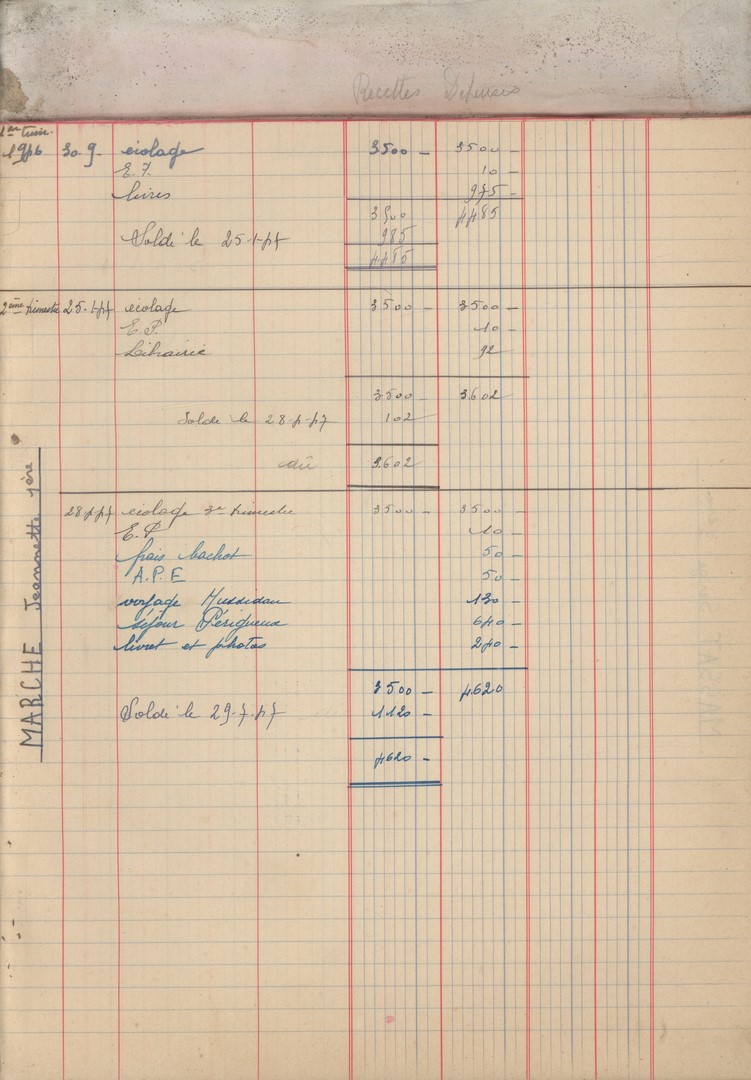 Recettes Dépenses
1er trim.
1946 30-9- écolage 3500 - 3500 -
E.P. 10 -
livres 975 -
3500 4485
Solde le 25-1-47 985
4485
2ème trimestre 25-1-47 écolage 3500 - 3500 -
E.P. 10 -
Librairie 92
3500 - 3602
Solde le 28-4-47 102
dû 3602
28-4-47 écolage 3e trimestre 3500 - 3500 -
E.P 10 -
frais bachot 50 -
A.P.E 50 -
voyage Mussidan 130 -
séjour Périgueux 640 -
livret et photos 240 -
3500 - 4620
Solde le 29-7-47 1120 -
4620 -
MARCHE Jeannette 1ère